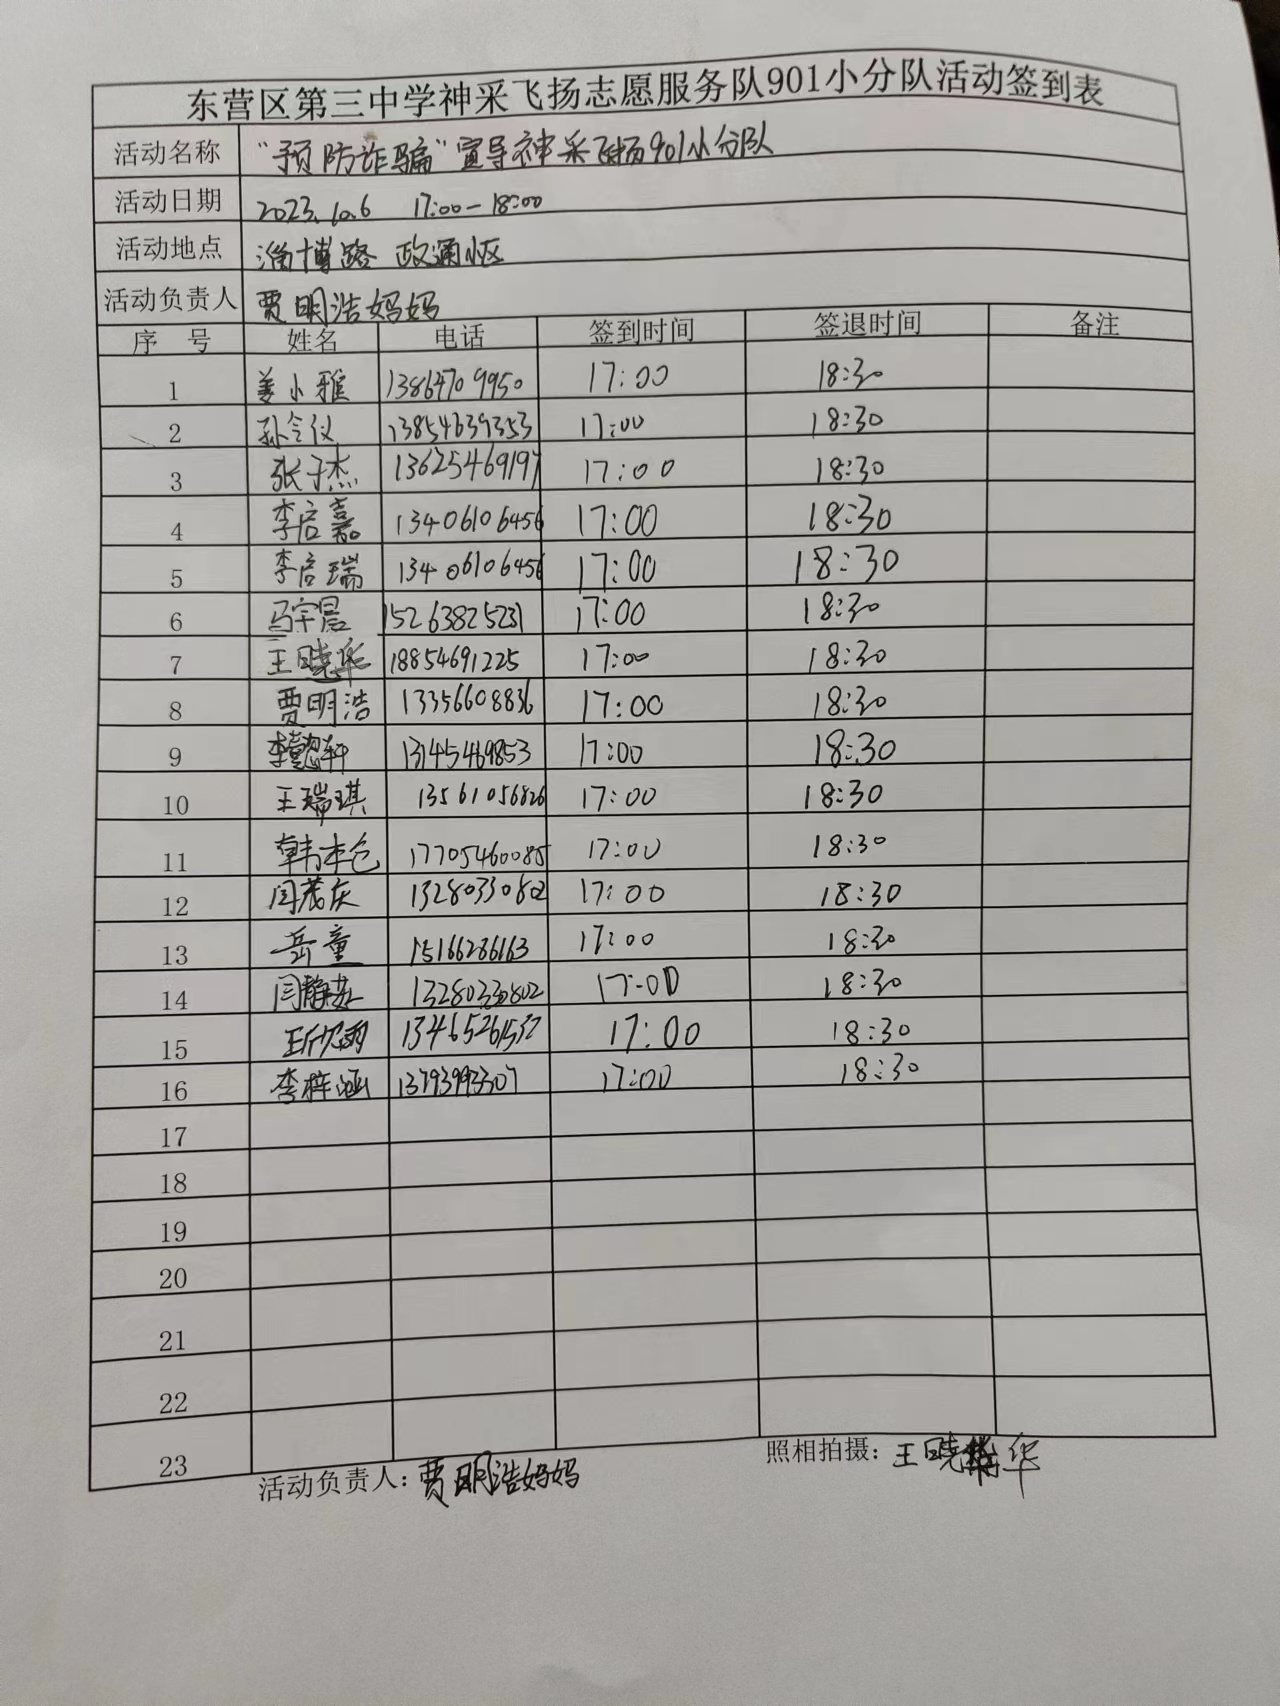 东营区第三中学神采飞扬志愿服务队901小分队活动签到表
活动名称 "预防诈骗"宣导神采飞扬901小分队
活动日期 2023.10.6 17:00-18:00
活动地点 淄博路 政通小区
活动负责人 贾明浩妈妈
序 号 姓名 电话 签到时间 签退时间 备注
1 姜小雅 13864709950 17:00 18:30
2 孙令仪 13854639353 17:00 18:30
3 张子杰 13625469197 17:00 18:30
4 李启嘉 13406106456 17:00 18:30
5 李启瑞 13406106456 17:00 18:30
6 马宇晨 15263825231 17:00 18:30
7 王晓华 18854691225 17:00 18:30
8 贾明浩 13356608836 17:00 18:30
9 李懿轩 13145469853 17:00 18:30
10 王瑞琪 13561056826 17:00 18:30
11 韩本仓 17705460085 17:00 18:30
12 闫茂庆 13280330802 17:00 18:30
13 岳童 15166286163 17:00 18:30
14 13280330802 17:00 18:30
15 王欣雨 13465261532 17:00 18:30
16 李梓涵 13793993307 17:00 18:30
17
18
19
20
21
22
23
活动负责人：贾明浩妈妈 照相拍摄：王晓华